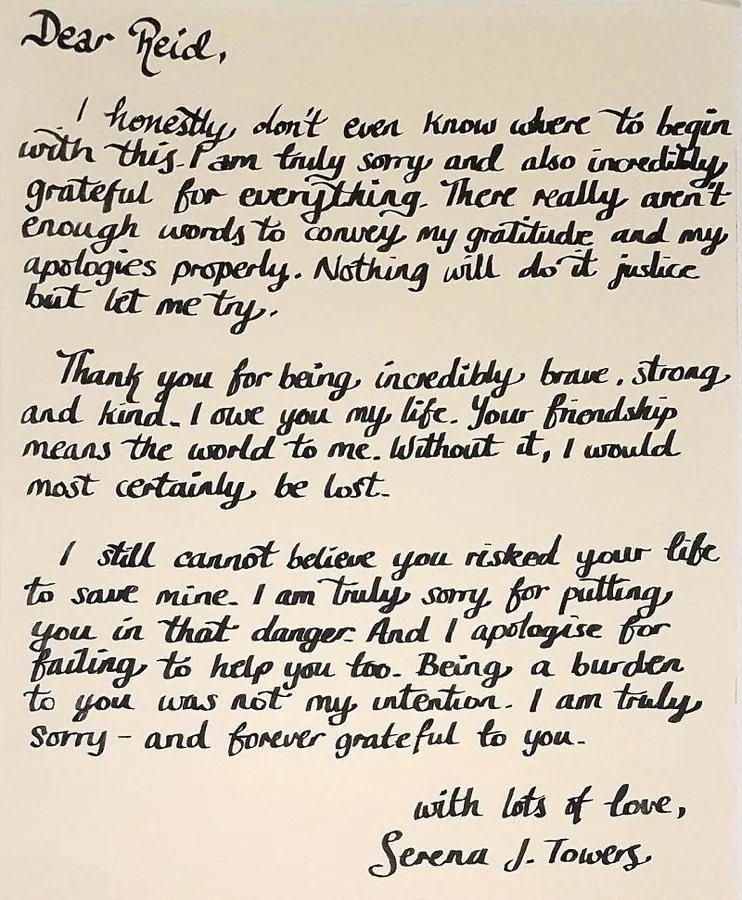 Dear Reid,
I honestly don't even know where to begin
with this. I am truly sorry and also incredibly
grateful for everything. There really aren't
enough words to convey my gratitude and my
apologies properly. Nothing will do it justice
but let me try.
Thank you for being incredibly brave, strong
and kind. I owe you my life. Your friendship
means the world to me. Without it, I would
most certainly be lost.
I still cannot believe you risked your life
to save mine. I am truly sorry for putting
you in that danger. And I apologise for
failing to help you too. Being a burden
to you was not my intention. I am truly
sorry - and forever grateful to you.
with lots of love,
Serena J. Towers